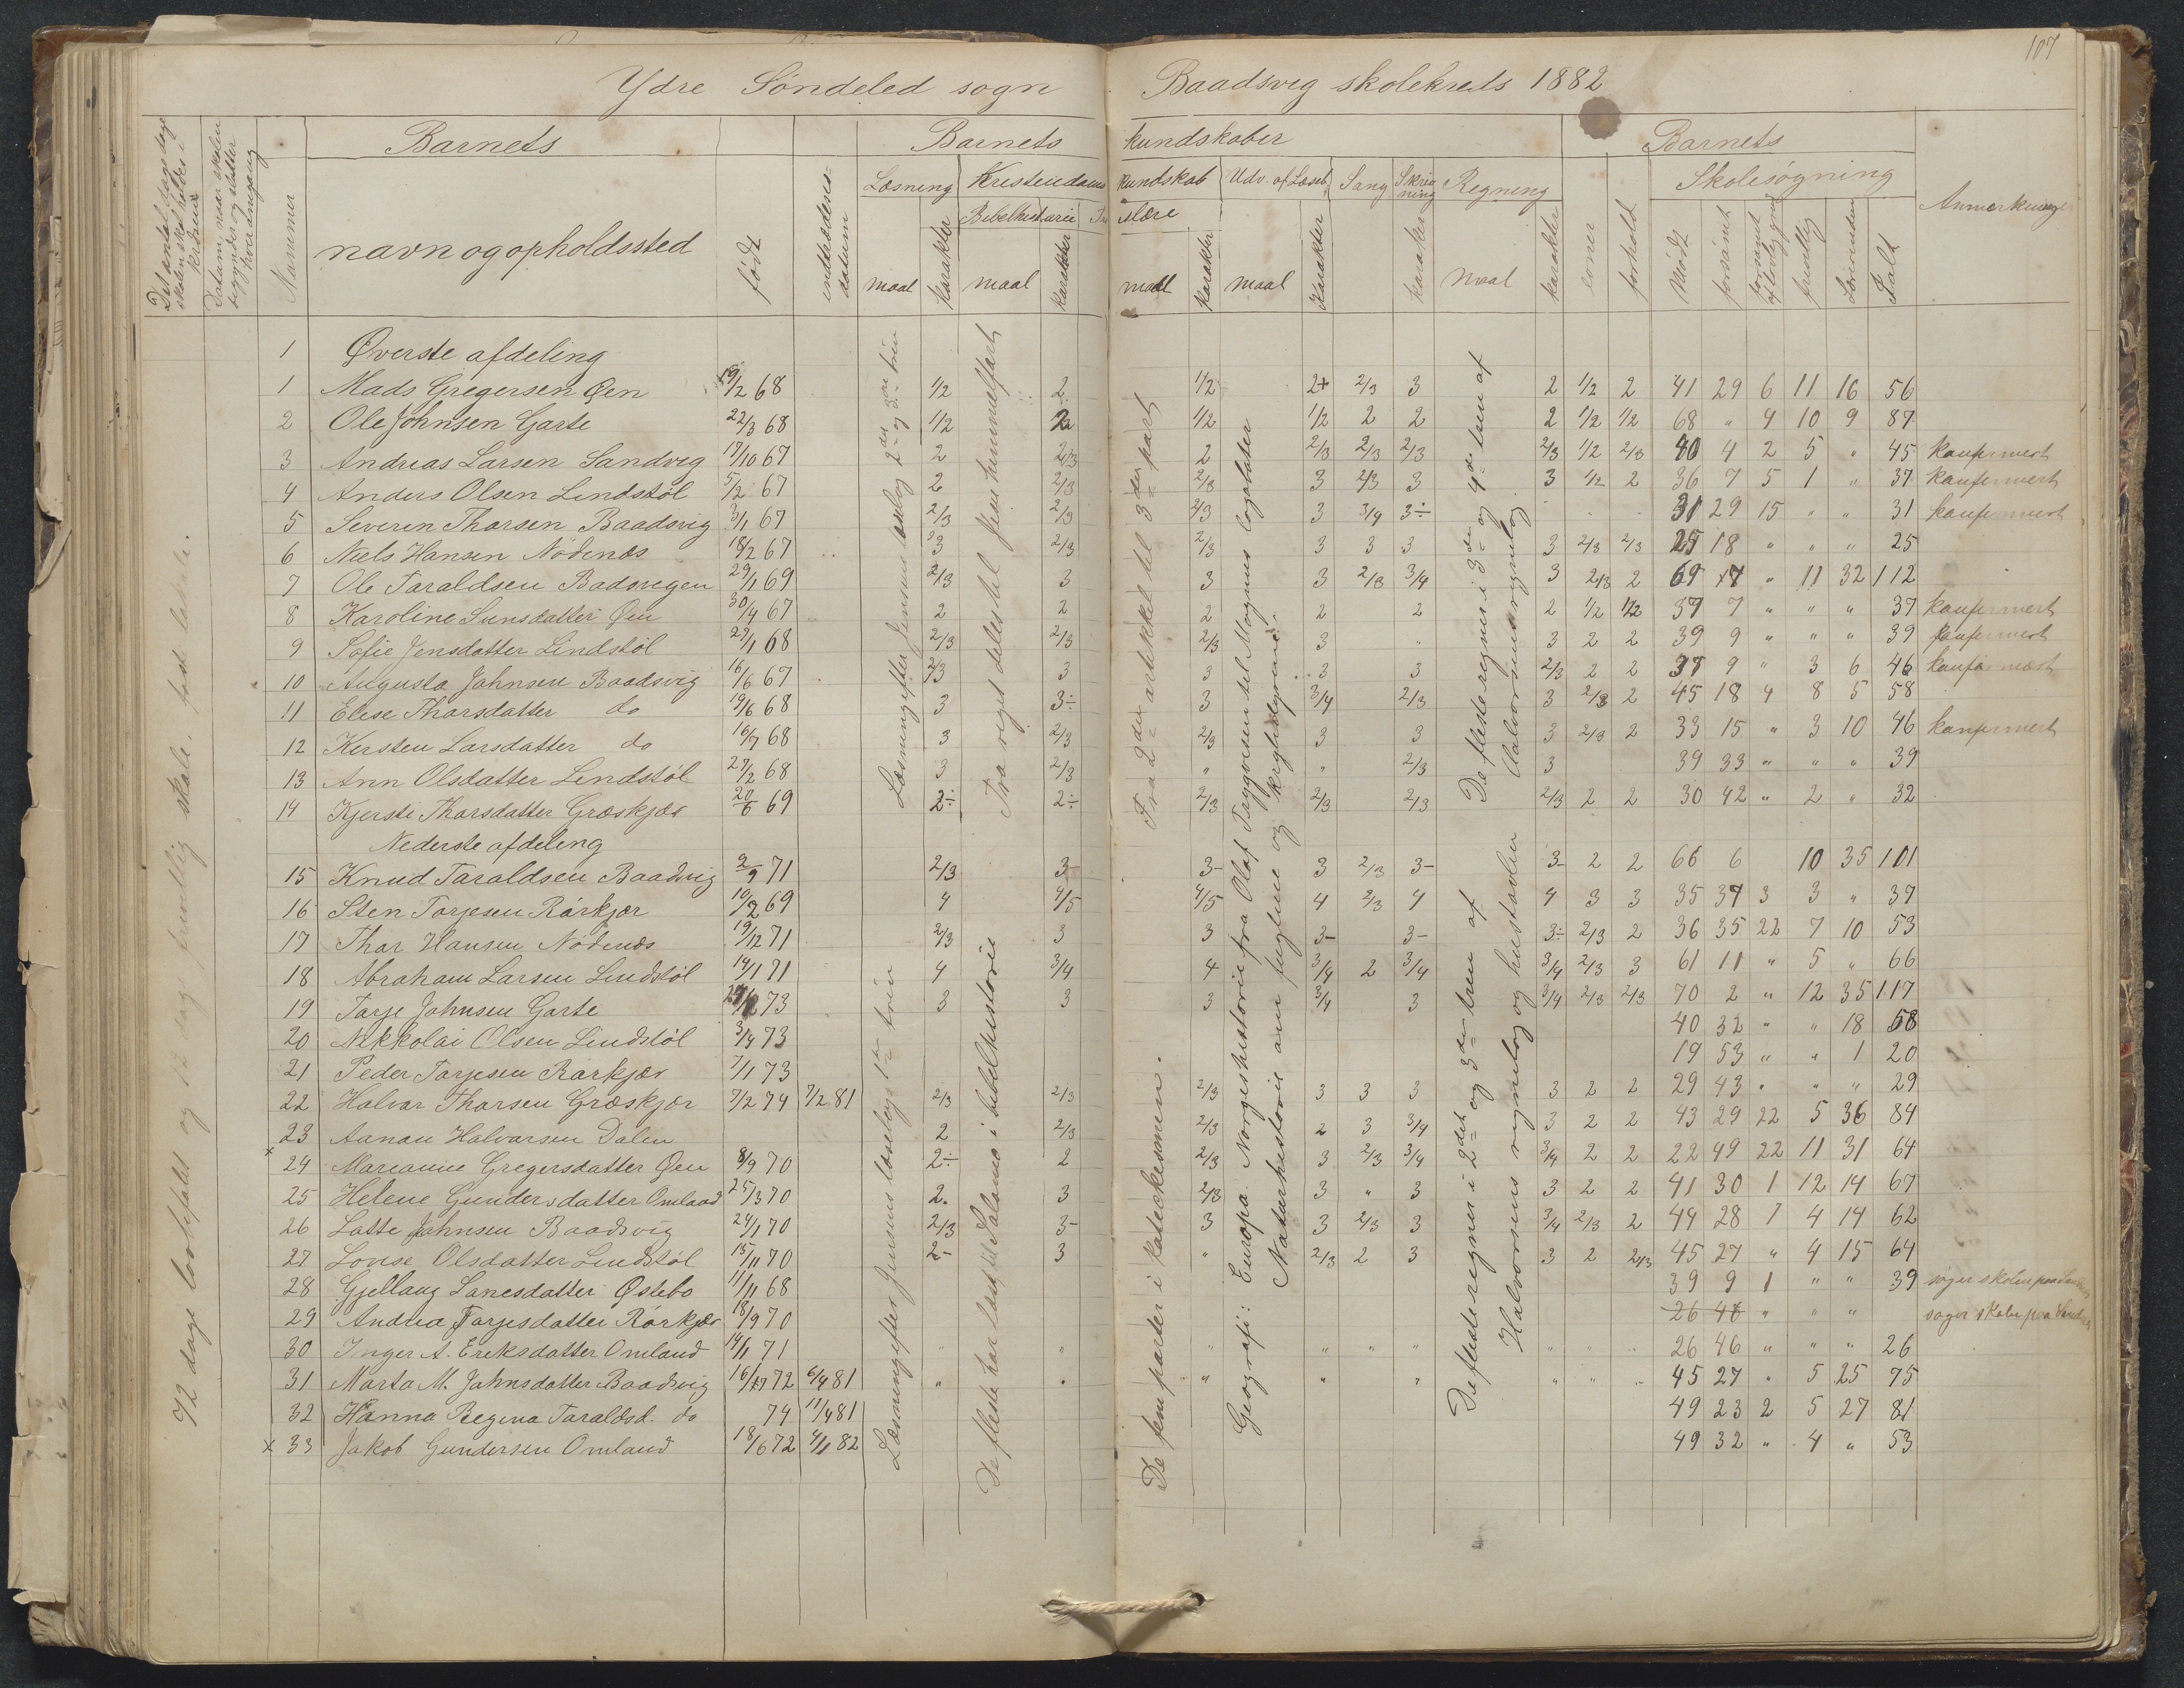 107
Ydre Söndeled sogn Baadsvig skolekreds 1882
Det antal dage skolen skal holdes i kredsen
Datum, naar skolen begynder og slutter hver omgang
Nummer
Barnets
navn og opholdssted
födt
indtrædelses-datum
Barnets kundskaber
Læsning Kristendoms kundskab Udv. af Læseb. Sang Skrivning Regning
Bibelhistorie Troeslære
maal karakter maal karakter maal karakter maal karakter karakter maal karakter
evner forhold
Barnets
Skolesögning
Mödt forsömt forsömt af lovlig grund frivillig Lovbunden Ialt
Anmærkninger
72 dage lovbefalt og 12 dage frivillig skole. fast lokale.
1 Øverste afdeling
1 Mads Gregersen Øen 19/2 68 1/2 2 1/2 2+ 2/3 3 2 1/2 2 41 29 6 11 16 56
2 Ole Johnsen Garte 22/3 68 1/2 2 1/2 1/2 2 2 2 1/2 1/2 68 " 4 10 9 87
3 Andreas Larsen Sandvig 17/10 67 2 2/3 2 2/3 2/3 2/3 2/3 1/2 2/3 40 4 2 5 " 45 konfirmert
4 Anders Olsen Lindstöl 5/2 67 2 2/3 2/3 3 2/3 3 3 1/2 2 36 7 5 1 " 37 konfirmert
5 Severin Thorsen Baadsvig 3/1 67 2/3 2/3 2/3 3 3/4 3÷ 31 29 15 " " 31 konfirmert
6 Niels Hansen Nödenæs 18/2 67 3 2/3 2/3 3 3 3 3 2/3 2/3 25 18 " " " 25
7 Ole Taraldsen Badsvigen 29/1 69 2/3 3 3 3 2/3 3/4 3 2/3 2 69 17 " 11 32 112
8 Karoline Sunsdatter Øen 30/4 67 2 2 2 2 2 2 1/2 1/2 37 7 " " " 37 konfirmert
9 Sofie Jensdatter Lindstöl 29/1 68 2/3 2/3 2/3 3 " 3 2 2 39 9 " " " 39 konfirmert
10 Augusta Johnsen Baadsvig 16/6 67 2/3 3 3 3 3 2/3 2 2 37 9 " 3 6 46 konfirmert
11 Elise Thorsdatter do 19/6 68 3 3÷ 3 3/4 2/3 3 2/3 2 45 18 4 8 5 58
12 Kirsten Larsdatter do 16/7 68 3 2/3 2/3 3 3 3 2/3 2 33 15 " 3 10 46 konfirmert
13 Ann Olsdatter Lindstöl 27/2 68 3 2/3 " " 2/3 3 39 33 " " " 39
14 Kjersti Thorsdatter Græskjær 20/6 69 2÷ 2÷ 2/3 2/3 2/3 2/3 2 2 30 42 " 2 " 32
Nederste afdeling
15 Knud Taraldsen Baadsvig 2/9 71 2/3 3- 3- 3 2/3 3- 3- 2 2 66 6 10 35 101
16 Sten Torjesen Rörkjær 10/2 69 4 4/5 4/5 4 2/3 4 4 3 3 35 37 3 3 " 37
17 Thor Hansen Nödenæs 19/12 71 2/3 3 3 3- 3- 3÷ 2/3 2 36 35 22 7 10 53
18 Abraham Larsen Lindstöl 14/1 71 4 3/4 4 3/4 2 3/4 3/4 2/3 3 61 11 " 5 " 66
19 Torje Johnsen Garte 73 3 3 3 3/4 3 3/4 2/3 2/3 70 2 " 12 35 117
20 Nikkolai Olsen Lindstöl 3/4 73 40 32 " " 18 58
21 Peder Torjesen Rörkjær 7/1 73 19 53 " " 1 20
22 Halvor Thorsen Græskjær 7/2 74 7/2 81 2/3 2/3 2/3 3 3 3 3 2 2 29 43 " " " 29
23 Aanon Halvorsen Dalen 2 2/3 2/3 2 3 3/4 3 2 2 43 29 22 5 36 84
x 24 Marianne Gregersdatter Øen 8/9 70 2÷ 2 2/3 3 2/3 3/4 3/4 2 2 22 49 22 11 31 64
25 Helene Gundersdatter Omland 25/3 70 2. 3 2/3 3 " 3 3 2 2 41 30 1 12 14 67
26 Lotte Johnsen Baadsvig 24/1 70 2/3 3- 3 3 2/3 3 3/4 2/3 2 44 28 1 4 14 62
27 Lovise Olsdatter Lindstöl 15/11 70 2- 3 " 2/3 2 3 3 2 2/3 45 27 " 4 15 64
28 Gjellaug Lanesdatter Östebo 11/11 68 39 9 1 " " 39 söger skolen paa
29 Andrea Torjesdatter Rörkjær 18/9 70 26 46 " " " söger skole paa
30 Inger A. Ereksdatter Omland 14/1 71 " " " " " " " " " 26 46 " " " 26
31 Marta M. Johnsdatter Baadsvig 16/11 72 6/4 81 " " " " " " " " 45 27 " 5 25 75
32 Hanna Regina Taraldsd. do 74 11/4 81 49 23 2 5 27 81
x 33 Jakob Gundersen Omland 18/6 72 4/1 82 49 32 " 4 " 53
Læsning efter Jensens læsebog 2det og 3die trin
Fra riget deles til Jesu himmelfart
Fra 2den artikkel til 3die part
De fleste regner i 3die og 4de trin af
Halvorsens regnebog
Læsning efter Jensens læsebogs 1ste trin
De fleste har læst til Salomo i bibelhistorie
De fem parter i katekesmen.
Geografi: Europa. Norgeshistorie fra Olaf Trygvesen til Magnus lagaböter
Naturhistorie om fuglene og krybdyrene.
De fleste regner i 2det og 3die trin af
Halvorsens regnebog og hustavlen